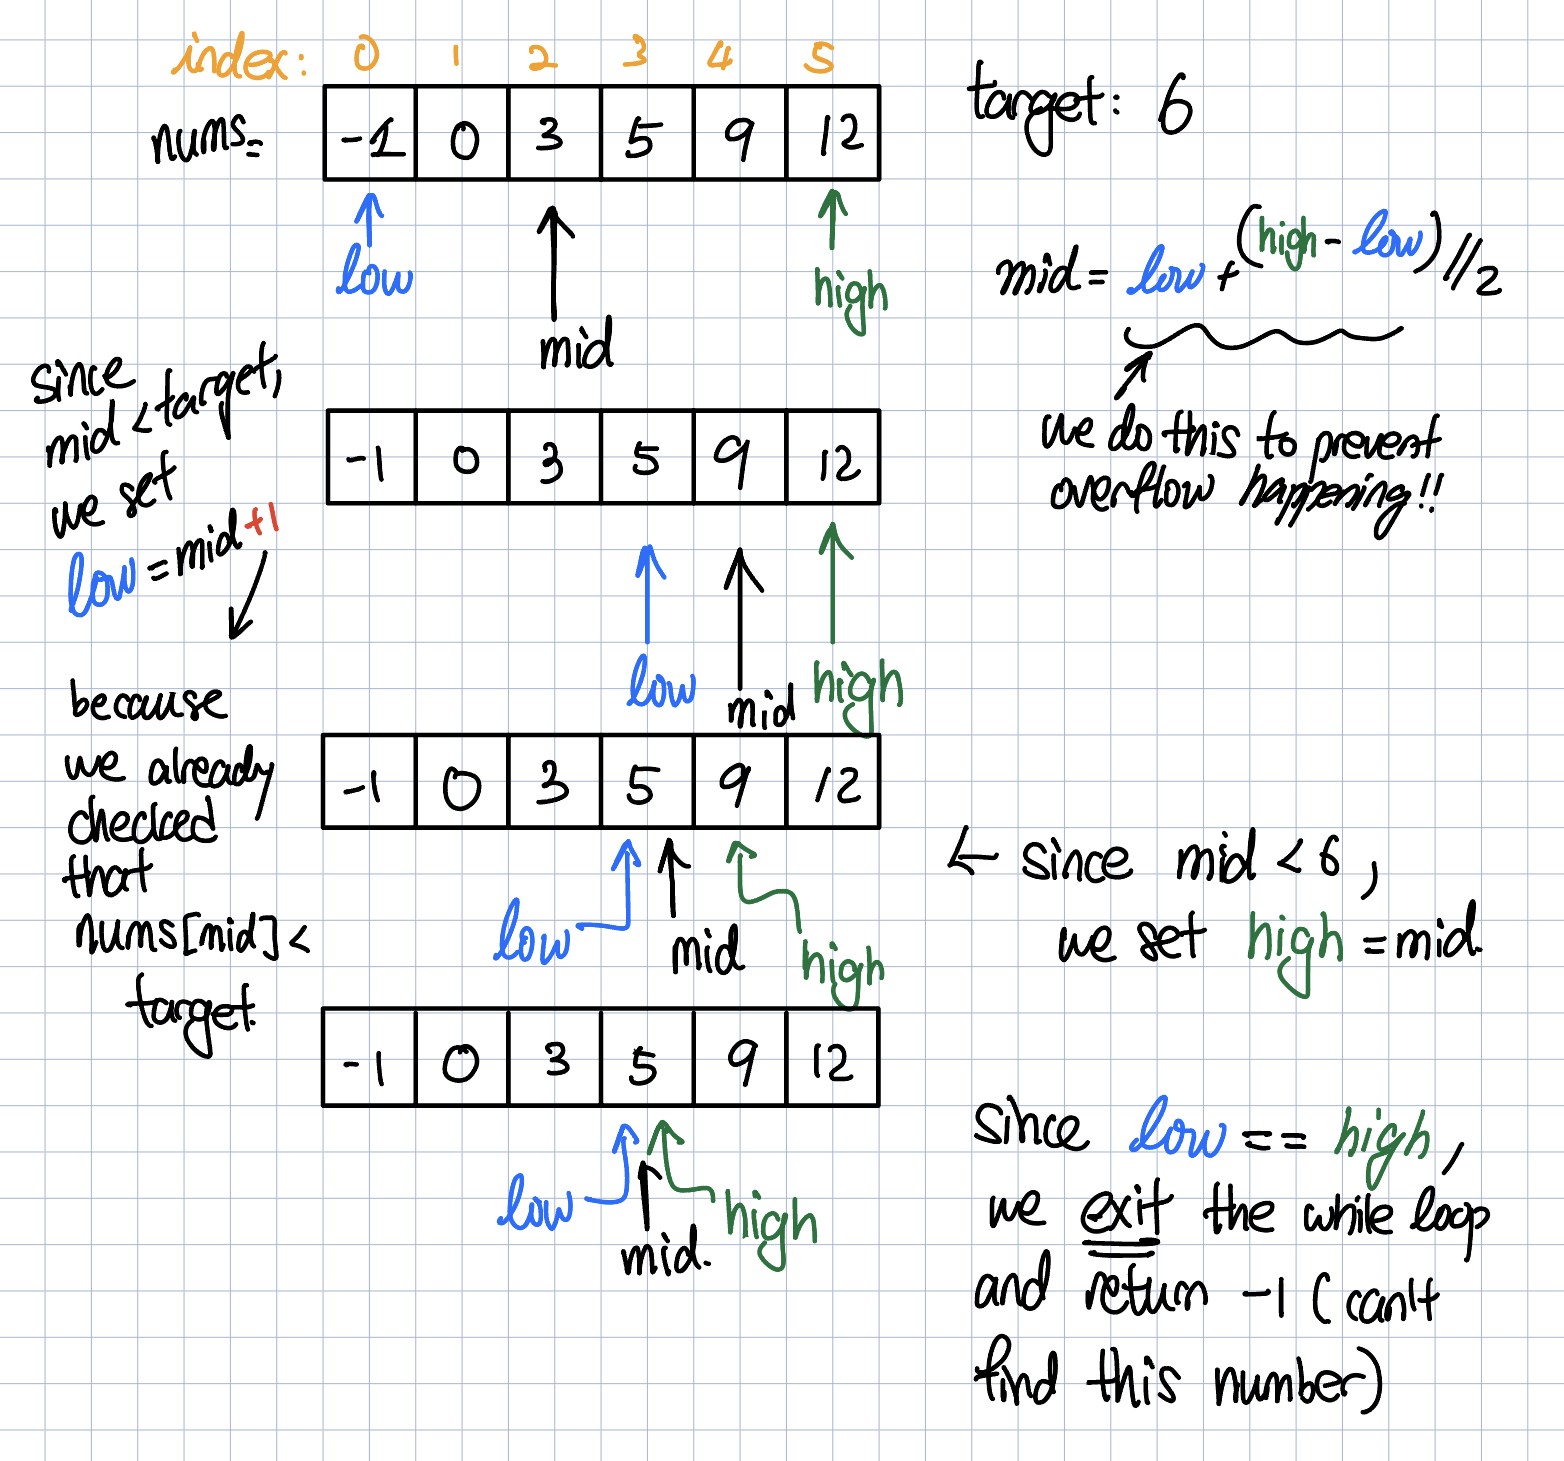 index: 0 1 2 3 4 5
nums= -1 0 3 5 9 12
target: 6
low
mid
high
mid = low + (high - low) // 2
we do this to prevent
overflow happening!!
since
mid < target,
we set
low = mid +1
-1 0 3 5 9 12
low
mid
high
because
we already
checked
that
nums[mid] <
target.
-1 0 3 5 9 12
low
mid
high
← since mid < 6,
we set high = mid.
-1 0 3 5 9 12
low
mid.
high
since low == high,
we exit the while loop
and return -1 (can't
find this number)